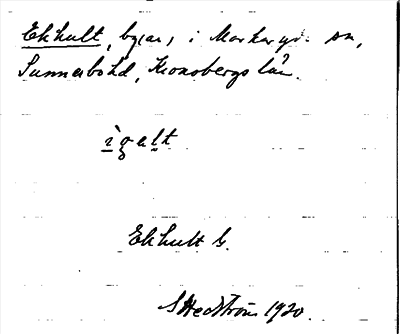 Ekhult, byar, i Markaryds sn,
Sunnerbo hd, Kronobergs län.
ìgalt
Ekhult G.
G Hedström 1920.